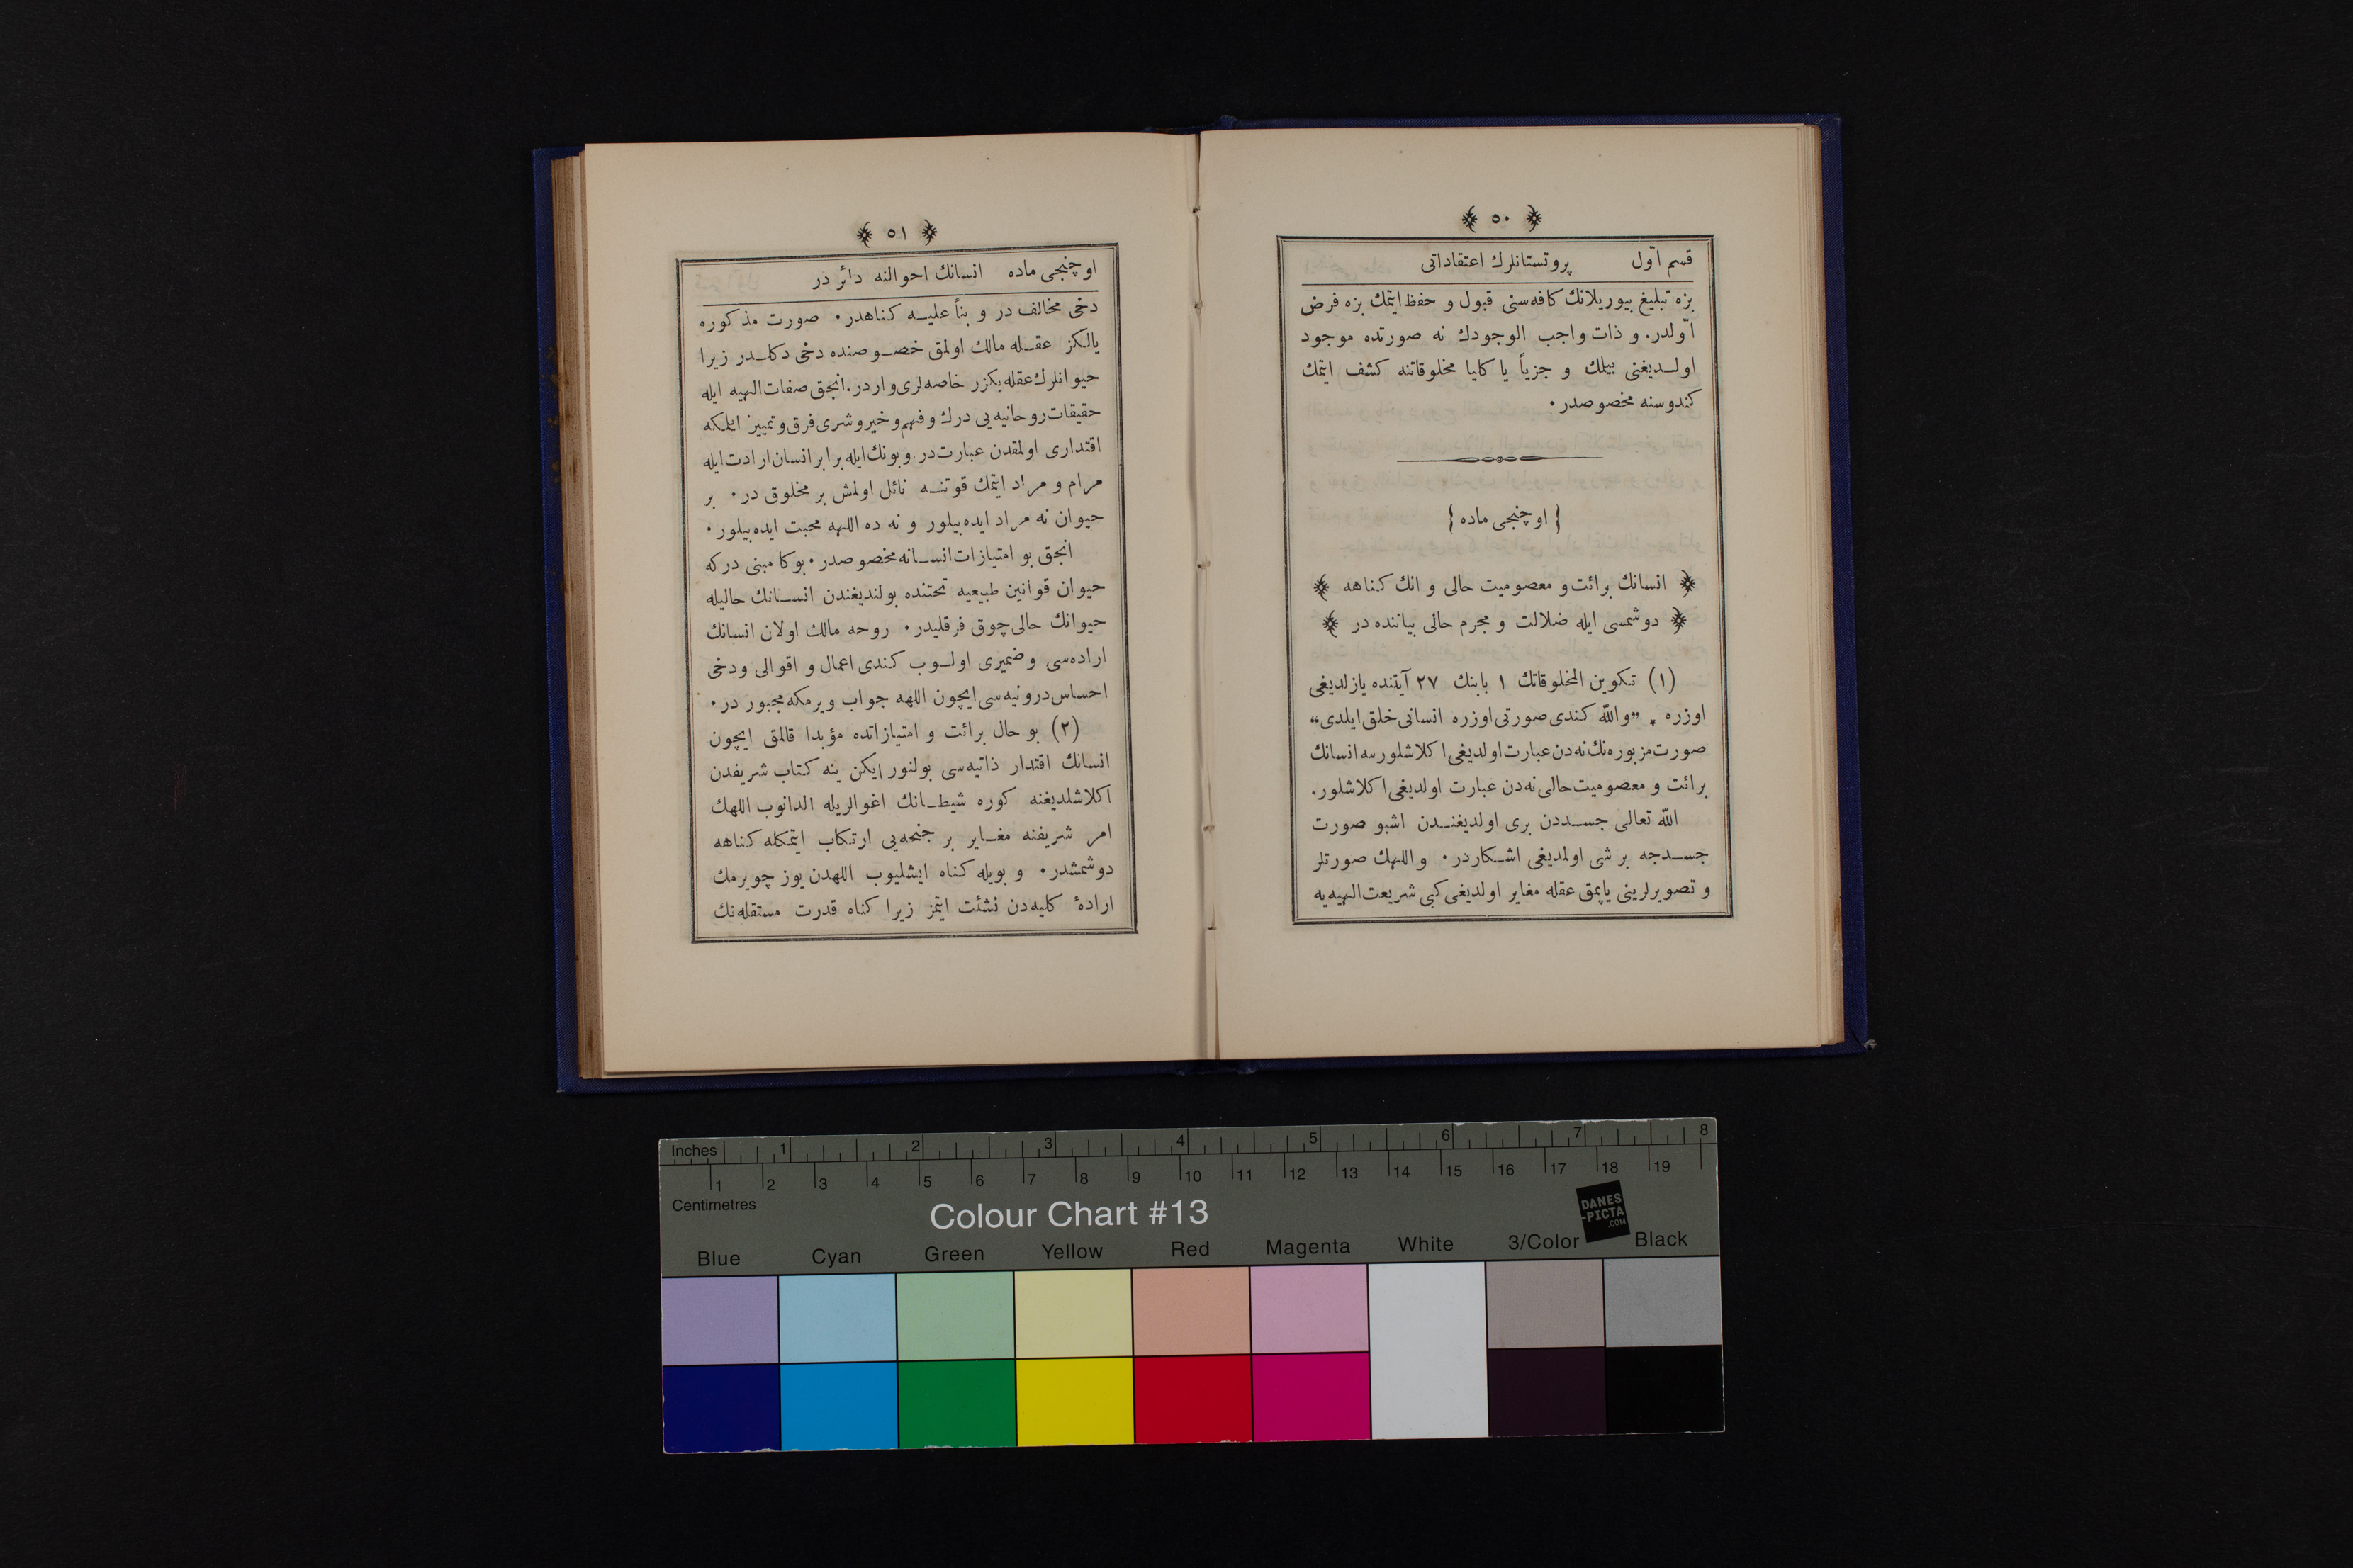 ﴿ ٥٠ ﴾
قسم اوّل پروتستانلرك اعتقاداتی
بزه تبلیغ بیوریلانك كافه‌سنی قبول و حفظ ایتمك بزه فرض
اوّلدر. و ذات واجب الوجودك نه صورتده موجود
اولــدیغنی بیلمك و جزیاً یا كلیا مخلوقاتنه كشف ایتمك
كندوسنه مخصوصدر٠
{ اوچنجی ماده }
﴿ انسانك برائت و معصومیت حالی و انك كناهه ﴾
﴿ دوشمسی ایله ضلالت و مجرم حالی بیاننده در ﴾
(١) تكوین المخلوقاتك ١ بابنك ٢٧ آیتنده یازلدیغی
اوزره ٭ ”والله كندی صورتی اوزره انسانی خلق ایلدی“
صورت مزبوره‌نك نه‌دن عبارت اولدیغی اكلاشلورسه انسانك
برائت و معصومیت حالی نه‌دن عبارت اولدیغی اكلاشلور.
الله تعالی جســددن بری اولدیغنــدن اشبو صورت
جســدجه بر شی اولمدیغی اشــكاردر٠ و اللهك صورتلر
و تصویرلرینی یاپمق عقله مغایر اولدیغی كبی شریعت الهیه‌یه
﴿ ٥١ ﴾
اوچنجی ماده انسانك احوالنه دائر در
دخی مخالف در و بنأً علیــه كناهدر٠ صورت مذكوره
یالكز عقــله مالك اولمق خصــوصنده دخی دكلــدر زیرا
حیوانلرك عقله بكزر خاصه‌لری واردر. انجق صفات الهیه ایله
حقیقات روحانیه‌یی درك و فهم و خیر و شری فرق و تمییز ایلمكه
اقتداری اولمقدن عبارت در. و بونك ایله برابر انسان ارادت ایله
مرام و مراد ایتمك قوتنــه نائل اولمش بر مخلوق در٠ بر
حیوان نه مراد ایده‌بیلور و نه ده اللهه محبت ایده‌بیلور٠
انجق بو امتیازات انســانه مخصوصدر٠ بوكا مبنی دركه
حیوان قوانین طبیعیه تحتنده بولندیغندن انســانك حالیله
حیوانك حالی چوق فرقلیدر٠ روحه مالك اولان انسانك
اراده‌سی و ضمیری اولــوب كندی اعمال و اقوالی ودخی
احساس درونیه‌سی ایچون اللهه جواب ویرمكه مجبور در٠
(٢) بو حال برائت و امتیازاتده مؤبدا قالمق ایچون
انسانك اقتدار ذاتیه‌سی بولنور ایكن ینه كتاب شریفدن
اكلاشلدیغنه كوره شیطــانك اغوالریله الدانوب اللهك
امر شریفنه مغــایر بر جنحه‌یی ارتكاب ایتمكله كناهه
دوشمشدر٠ و بویله كناه ایشلیوب اللهدن یوز چویرمك
ارادهٔ كلیه‌دن نشئت ایتمز زیرا كناه قدرت مستقله‌نك
Inches 1 2 3 4 5 6 7 8
1 2 3 4 5 6 7 8 9 10 11 12 13 14 15 16 17 18 19
Centimetres
Colour Chart #13
DANES
-PICTA
.COM
Blue Cyan Green Yellow Red Magenta White 3/Color Black